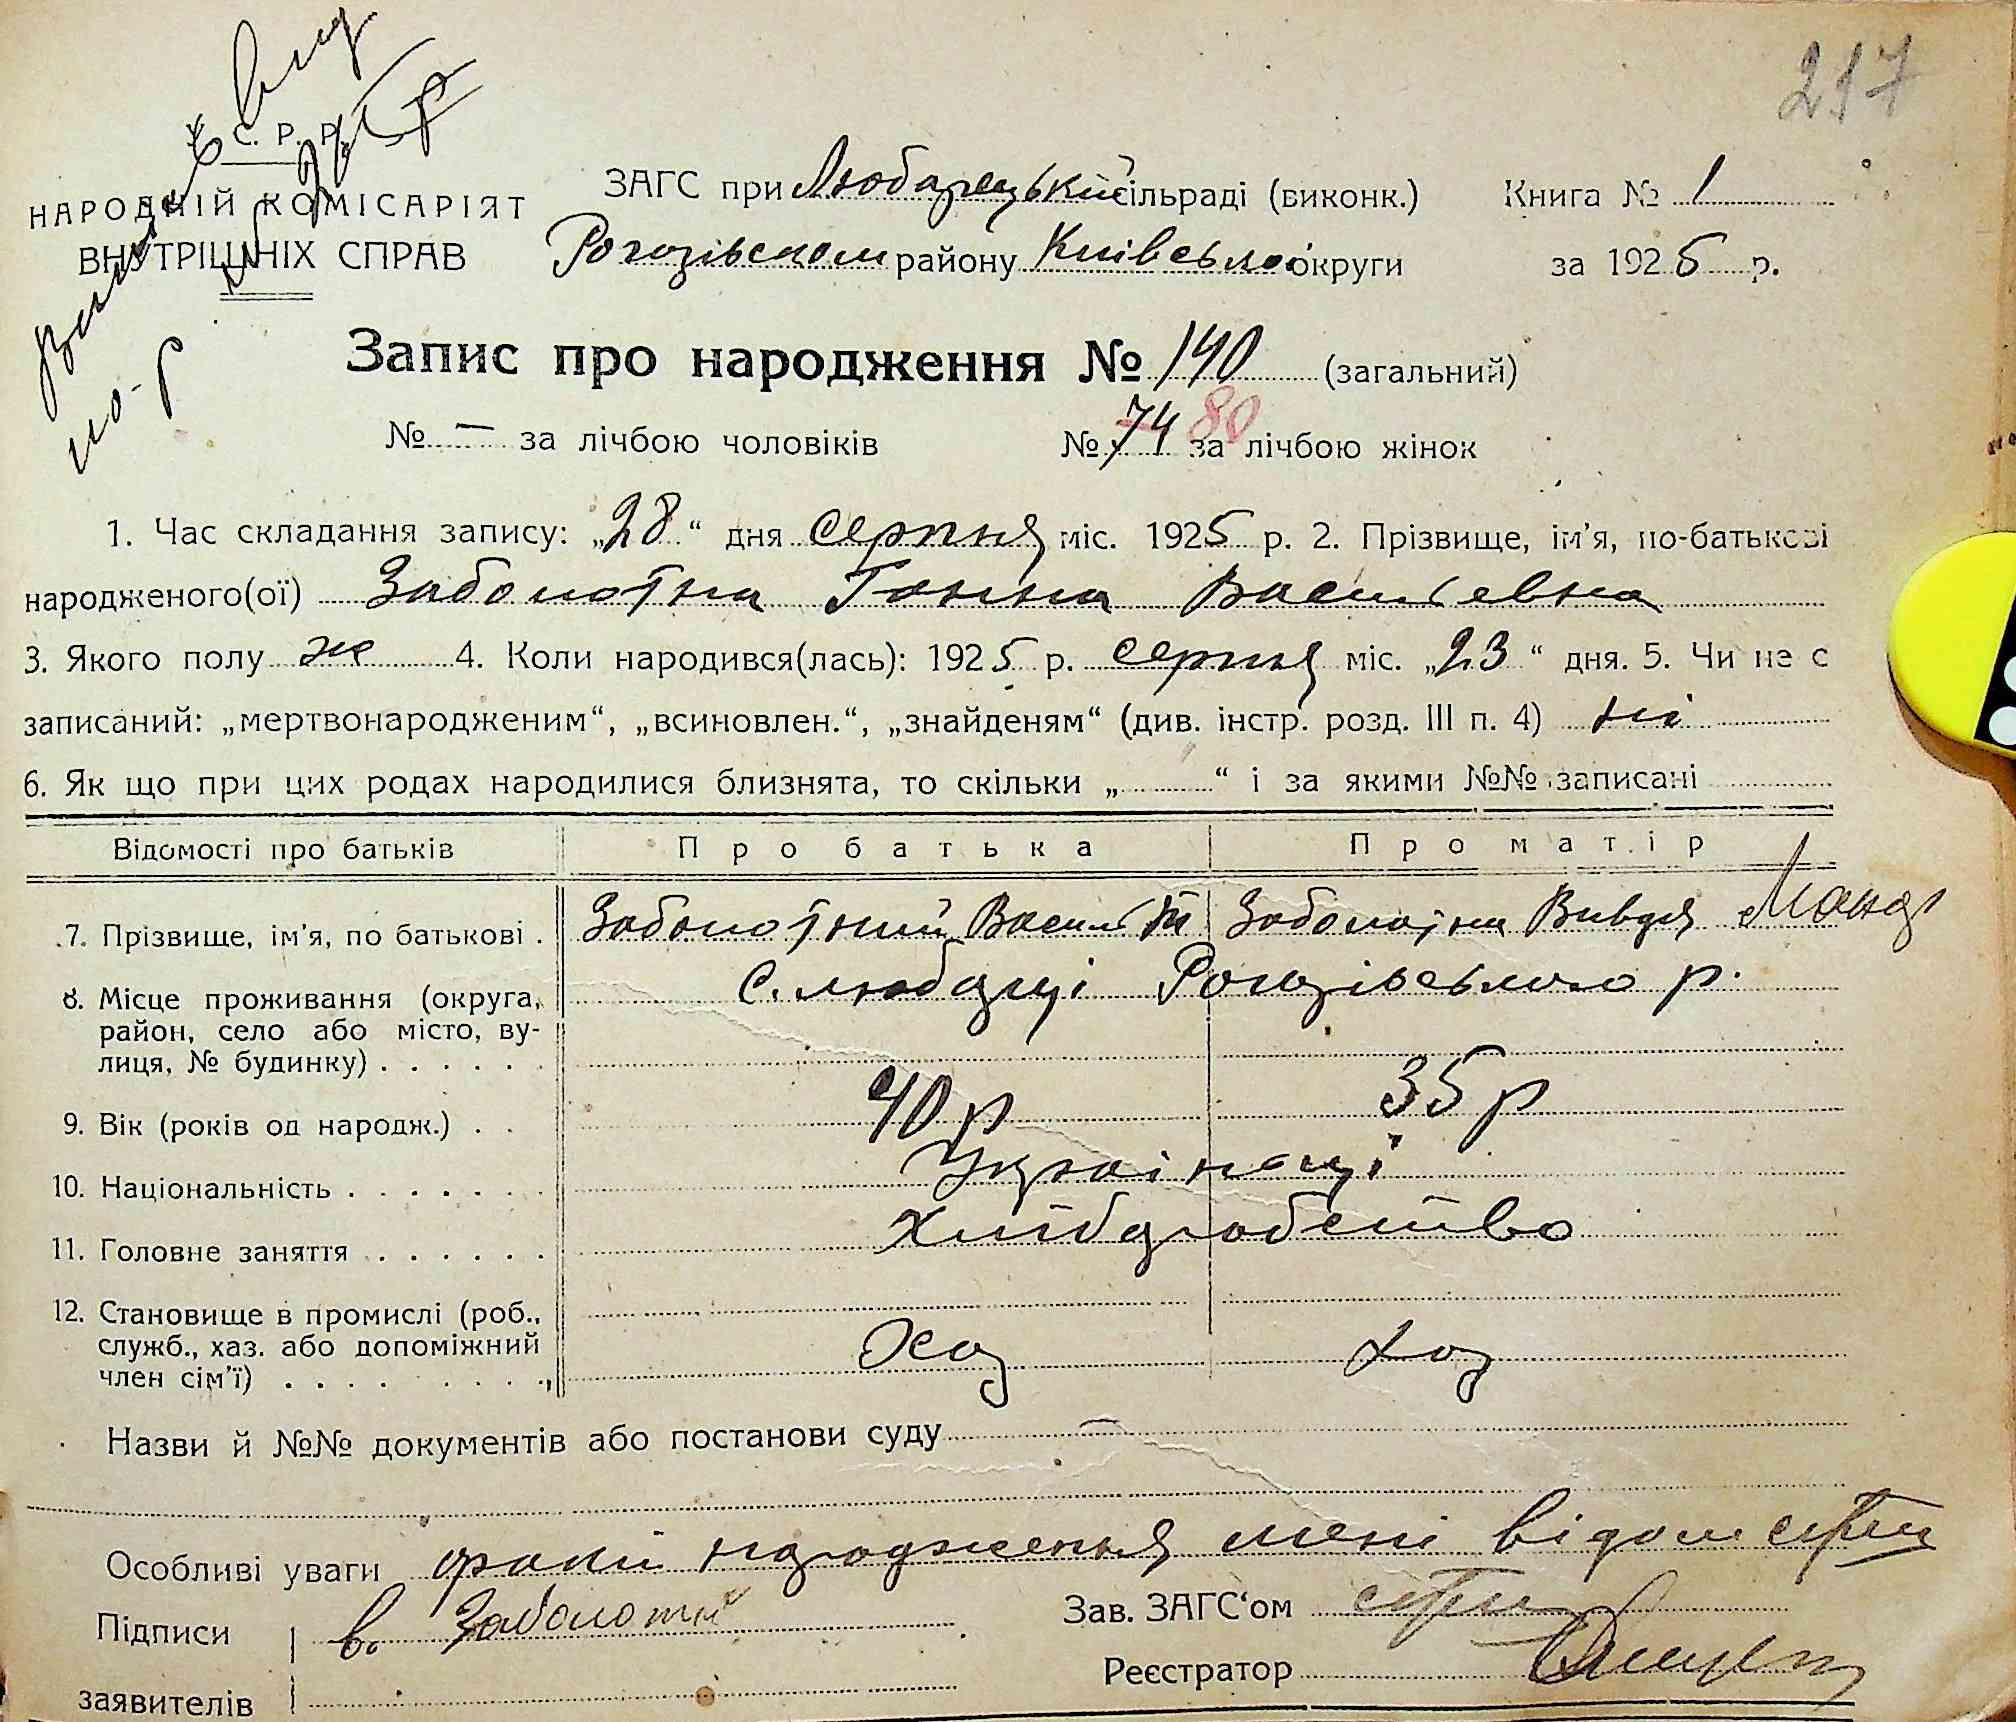 217
У. С. Р. Р.
НАРОДНІЙ КОМІСАРІЯТ
ВНУТРІШНІХ СПРАВ
ЗАГС при Любарецькій сільраді (виконк.) Книга № 1
Рогозівском району Київської округи за 1925 р.
Запис про народження № 140 (загальний)
№ — за лічбою чоловіків № 74 80 за лічбою жінок
1. Час складання запису: „28“ дня серпня міс. 1925 р. 2. Прізвище, ім'я, по-батькові
народженого(ої) Заболотна Ганна Васильевна
3. Якого полу ж 4. Коли народився(лась): 1925 р. серпня міс. „23“ дня. 5. Чи не є
записаний: „мертвонародженим“, „всиновлен.“, „знайденям“ (див. інстр. розд. III п. 4) ні
6. Як що при цих родах народилися близнята, то скільки „ “ і за якими №№ записані
Відомості про батьків Про батька Про матір
7. Прізвище, ім'я, по батькові . Заболотний Василь Заболотна Вивдя
8. Місце проживання (округа, район, село або місто, вулиця, № будинку) . . . . . . с. Любарці Рогозівського р.
9. Вік (років од народж.) . . 40 р 35 р
10. Національність . . . . . . . Українці
11. Головне заняття . . . . . . Хліборобство
12. Становище в промислі (роб., служб., хаз. або допоміжний член сім'ї) . . . . Хаз Хаз
Назви й №№ документів або постанови суду —
Особливі уваги факт народження мені відом
Підписи В. Заболотній Зав. ЗАГС‘ом
заявителів Реєстратор